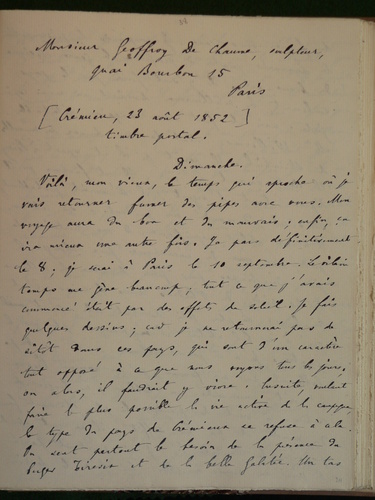 Monsieur Geoffroy De Chaume, sculpteur,
quai Bourbon 15
Paris
[Crémieu, 23 août 1852]
timbre postal.
Dimanche.
Voilà, mon vieux, le temps qui aproche où je
vais retourner fumer des pipes avec vous. Mon
voyage aura du bon et du mauvais; enfin, ça
ira mieux une autre fois. Je pars définitivement
le 8; je serai à Paris le 10 septembre. Le
temps me gêne beaucoup; tout ce que j'avais
commencé était par des effets de soleil. Je fais
quelques dessins; car je ne retournerai pas de
sitôt dans ces pays, qui sont d'un caractère
tout opposé à ce que nous voyons tous les jours,
ou alors, il faudrait y vivre. Ensuite, voulant
faire le plus possible la vie active de la campagne,
le type du pays de Crémieu se refuse à cela.
On sent partout le besoin de la présence du
et de la belle Galatée. Un tas